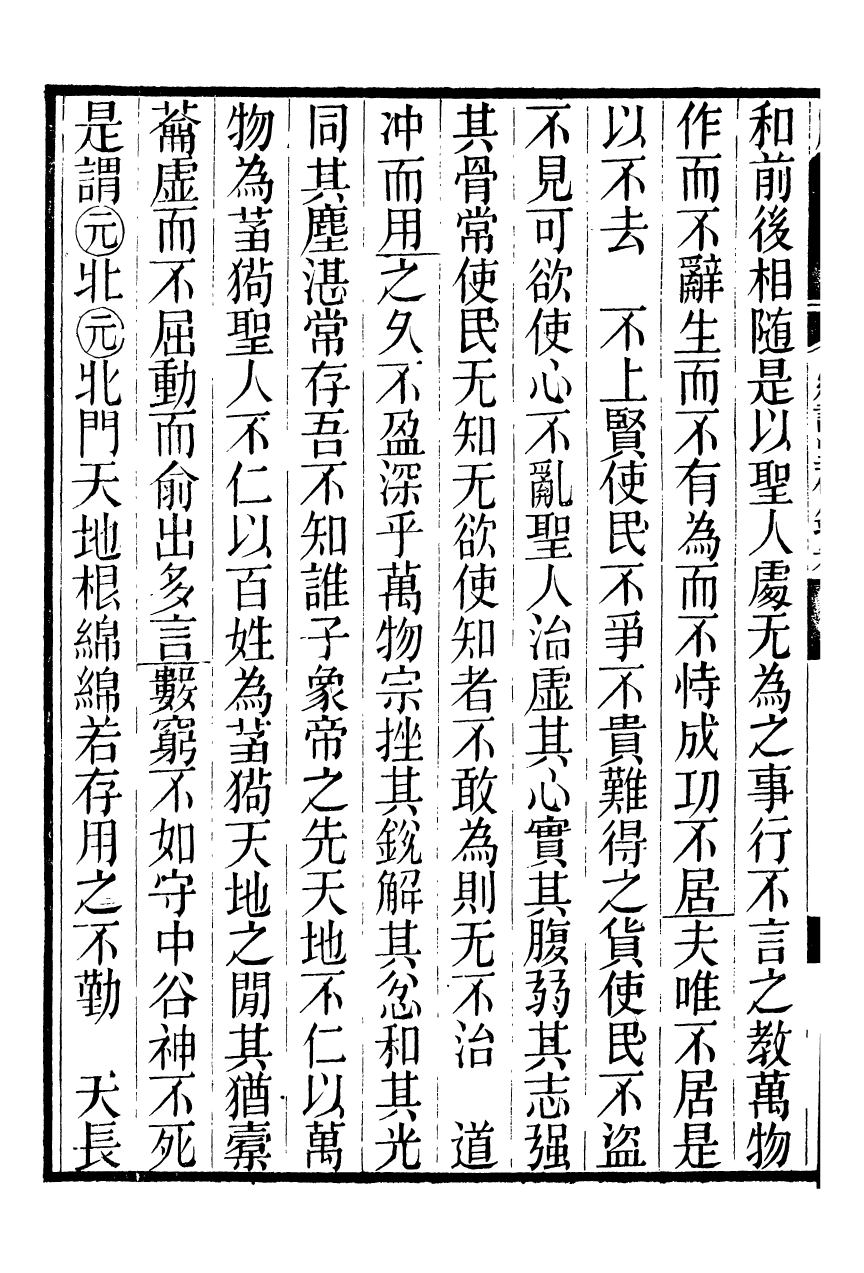 和前後相随是以聖人處无為之事行不言之教萬物
作而不辭生而不有為而不恃成功不居夫唯不居是
以不去　不上賢使民不爭不貴難得之貨使民不盜
不見可欲使心不亂聖人治虛其心實其腹弱其志强
其骨常使民无知无欲使知者不敢為則无不治　道
冲而用之久不盈深乎萬物宗挫其銳解其忿和其光
同其塵湛常存吾不知誰子象帝之先天地不仁以萬
物為芻狗聖人不仁以百姓為芻狗天地之閒其猶橐
籥虛而不屈動而俞出多言數窮不如守中谷神不死
是謂元牝元牝門天地根綿綿若存用之不勤　天長